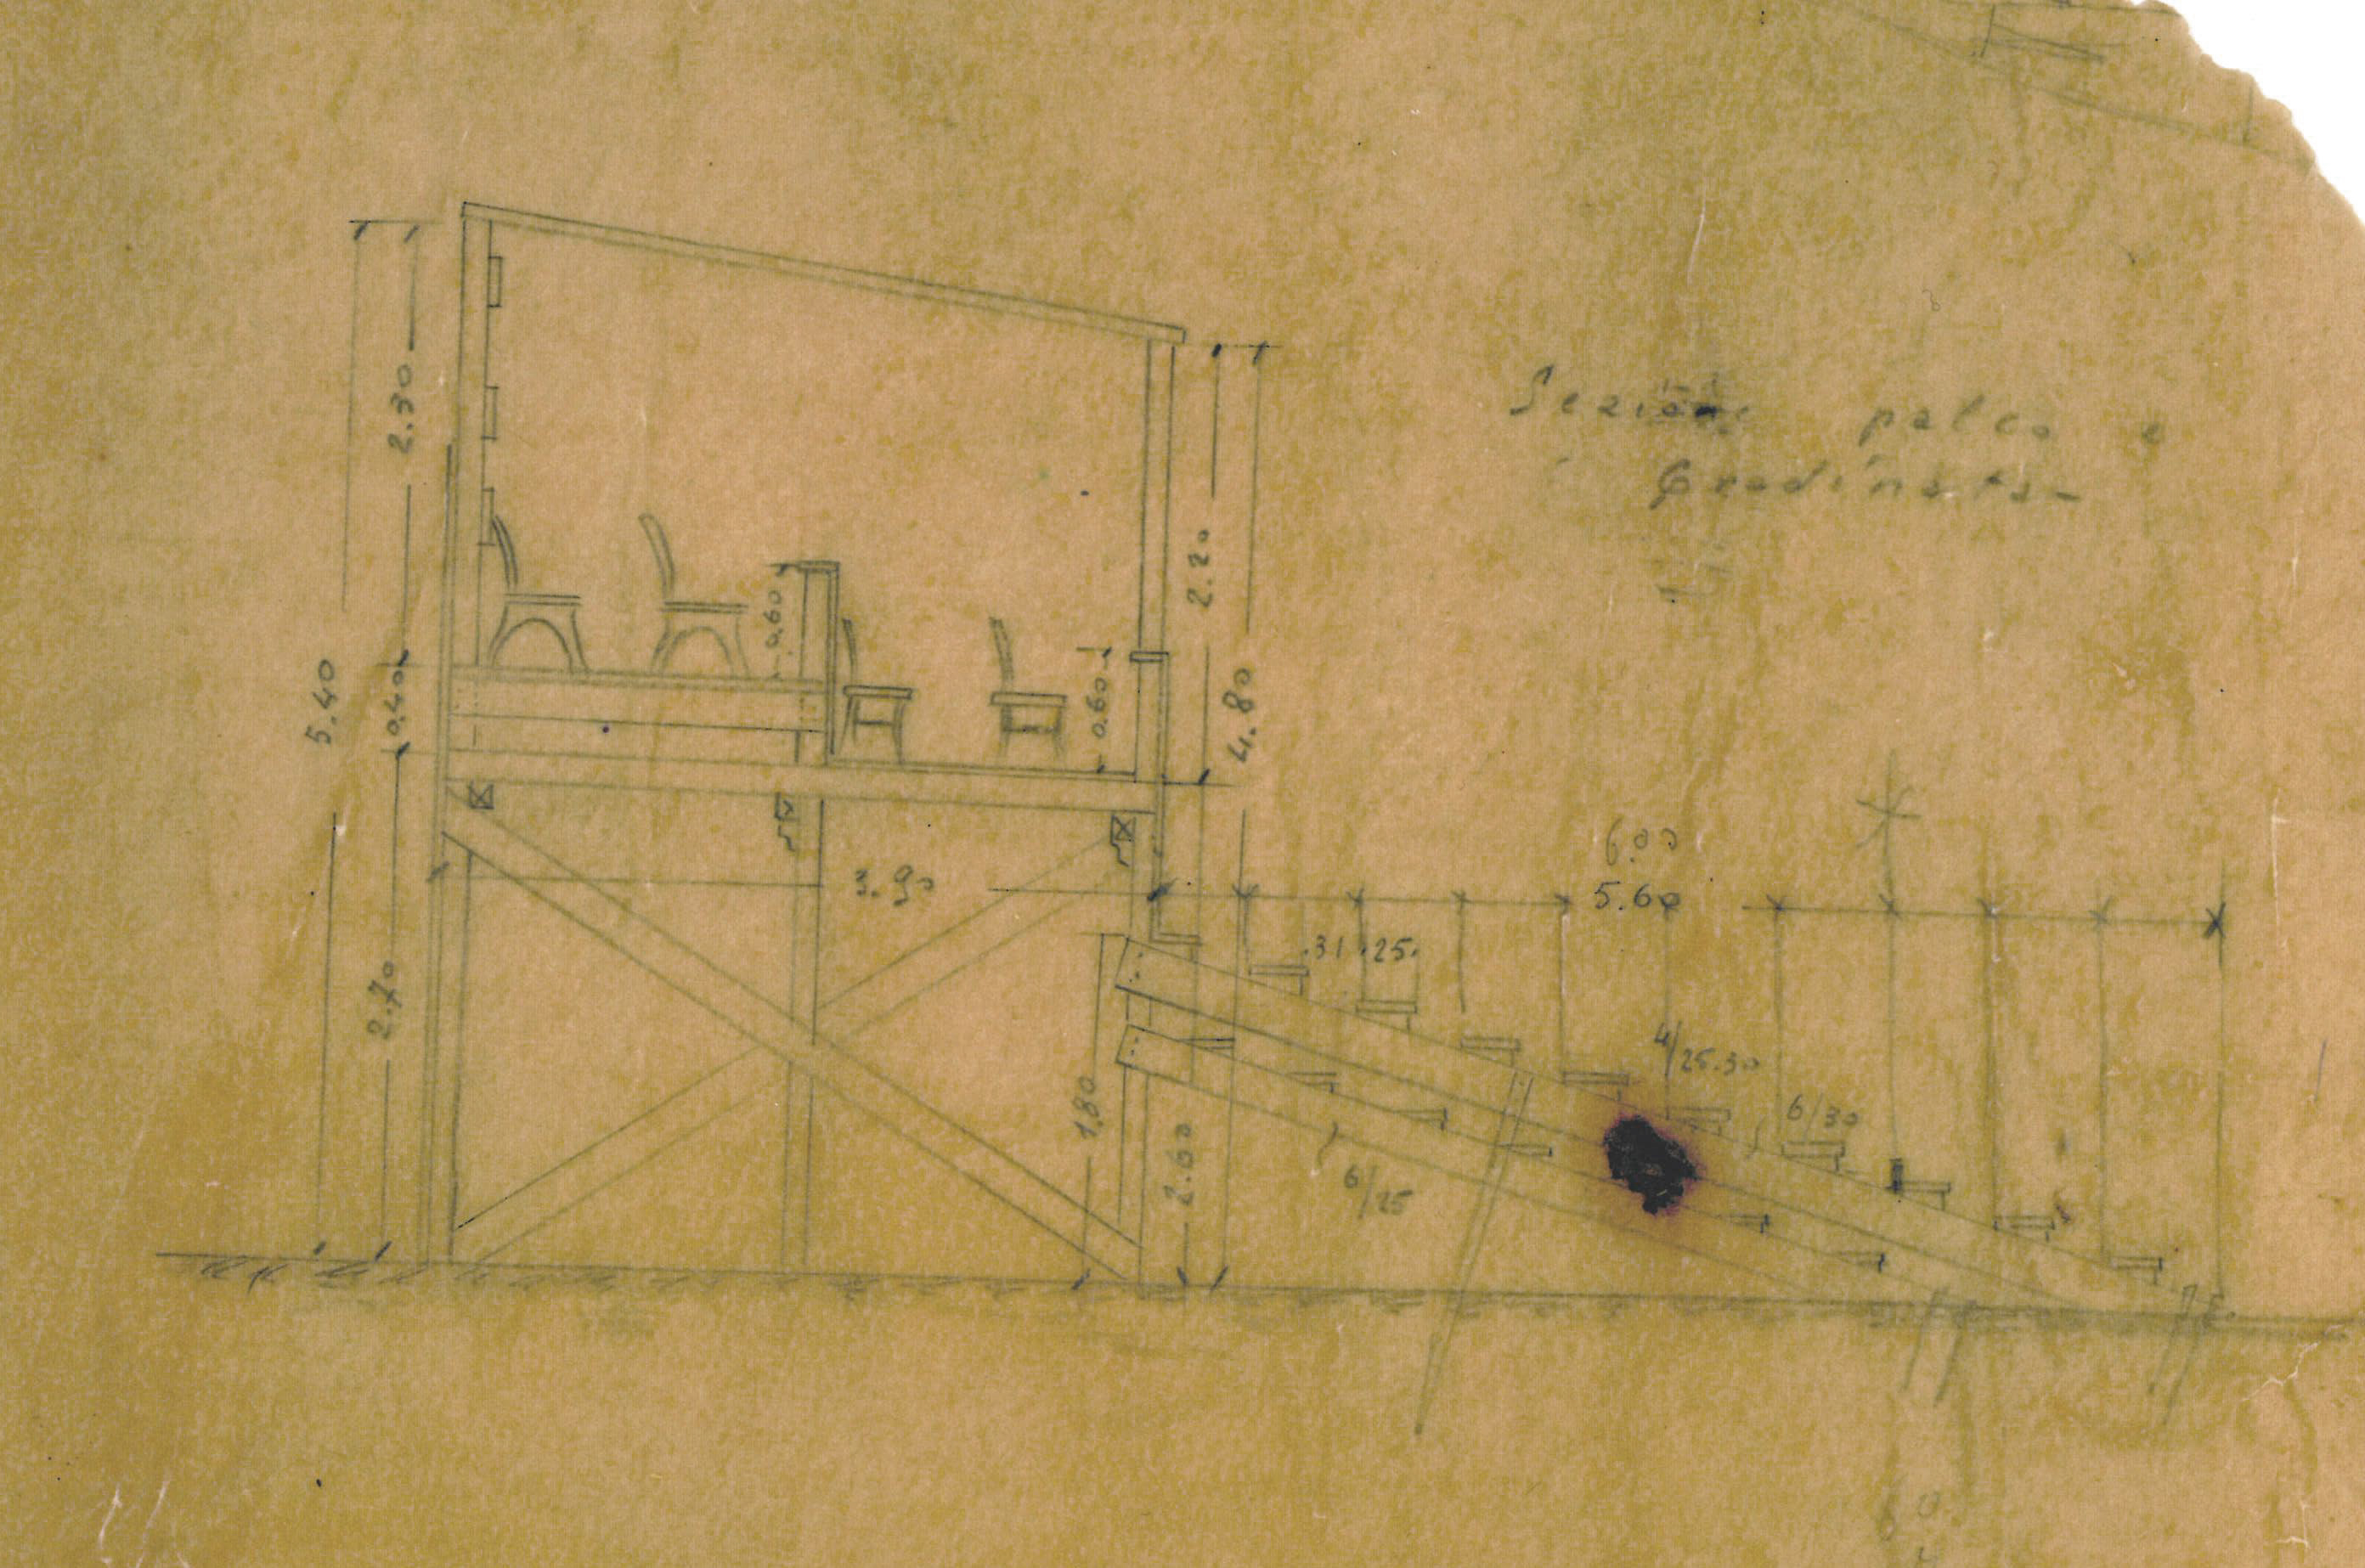 Sezione palco e
Gradinata-
2.30
5.40
0.40
2.70
0.60
0.60
2.20
4.80
3.90
6.00
5.60
.31 .25.
4/25.30
6/30
1.80
2.60
6/25